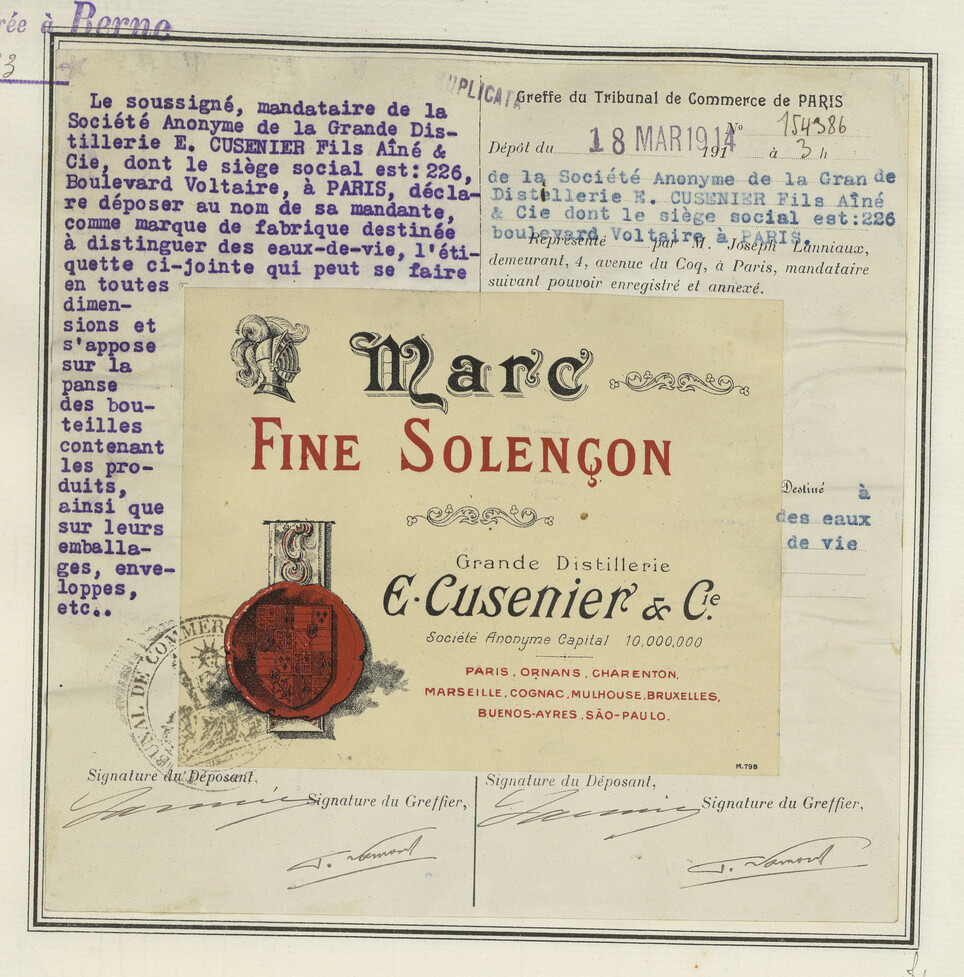 rée à Berne
3
Le soussigné, mandataire de la
Société Anonyme de la Grande Dis-
tillerie E. CUSENIER Fils Aîné &
Cie, dont le siège social est: 226,
Boulevard Voltaire, à PARIS, décla-
re déposer au nom de sa mandante,
comme marque de fabrique destinée
à distinguer des eaux-de-vie, l'éti-
quette ci-jointe qui peut se faire
en toutes
dimen-
sions et
s'appose
sur la
panse
des bou-
teilles
contenant
les pro-
duits,
ainsi que
sur leurs
emballa-
ges, enve-
loppes,
etc..
DUPLICATA
Greffe du Tribunal de Commerce de PARIS
Nº 154386
Dépôt du 18 MAR 1914 191 à 3 h
de la Société Anonyme de la Gran de
Distellerie E. CUSENIER Fils Aîné
& Cie dont le siège social est:226
boulevard Voltaire à PARIS.
Représenté par M. Joseph Lanniaux,
demeurant, 4, avenue du Coq, à Paris, mandataire
suivant pouvoir enregistré et annexé.
Destiné à
des eaux
de vie
Marc
FINE SOLENÇON
Grande Distillerie
E. Cusenier & Cie.
Société Anonyme Capital 10,000,000
PARIS, ORNANS, CHARENTON,
MARSEILLE, COGNAC, MULHOUSE, BRUXELLES,
BUENOS-AYRES, SÃO-PAULO.
M.798
UNAL DE COMMER
Signature du Déposant,
Signature du Greffier,
Signature du Déposant,
Signature du Greffier,